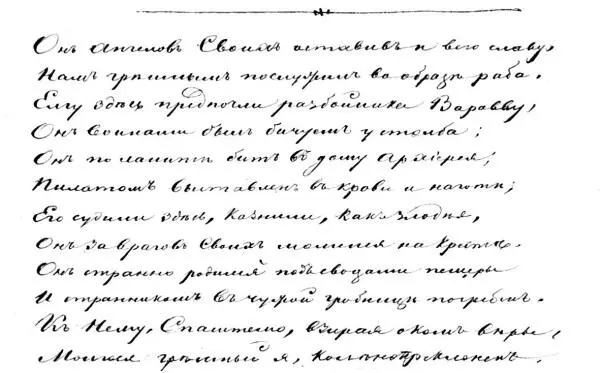 Онъ Ангеловъ Своихъ оставивъ и всю славу,
Намъ грѣшнымъ послужилъ во образѣ раба.
Ему здѣсь предпочли разбойника Варавву,
Онъ воинами былъ бичуемъ у столба;
Онъ по ланитѣ битъ въ дому Архіерея;
Пилатомъ выставленъ въ крови и наготѣ;
Его судили здѣсь, казнили, какъ злодѣя,
Онъ за враговъ Своихъ молился на Крестѣ.
Онъ странно родился подъ сводами пещеры
И странникомъ въ чужой гробницѣ погребенъ.
Къ Нему, Спасителю, взирая окомъ вѣры,
Молюся грѣшный я, колѣнопреклоненъ.